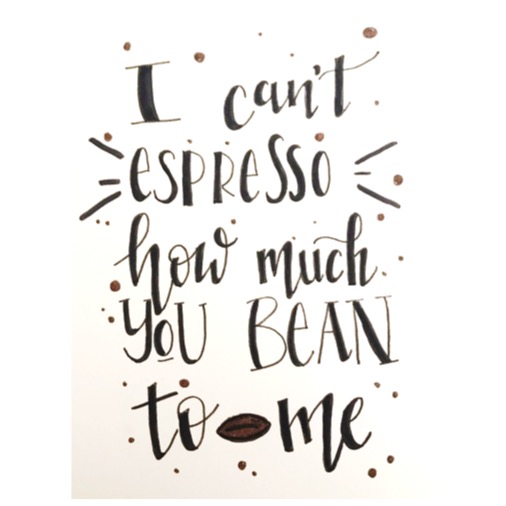 I can't
espresso
how much
YOU BEAN
to me